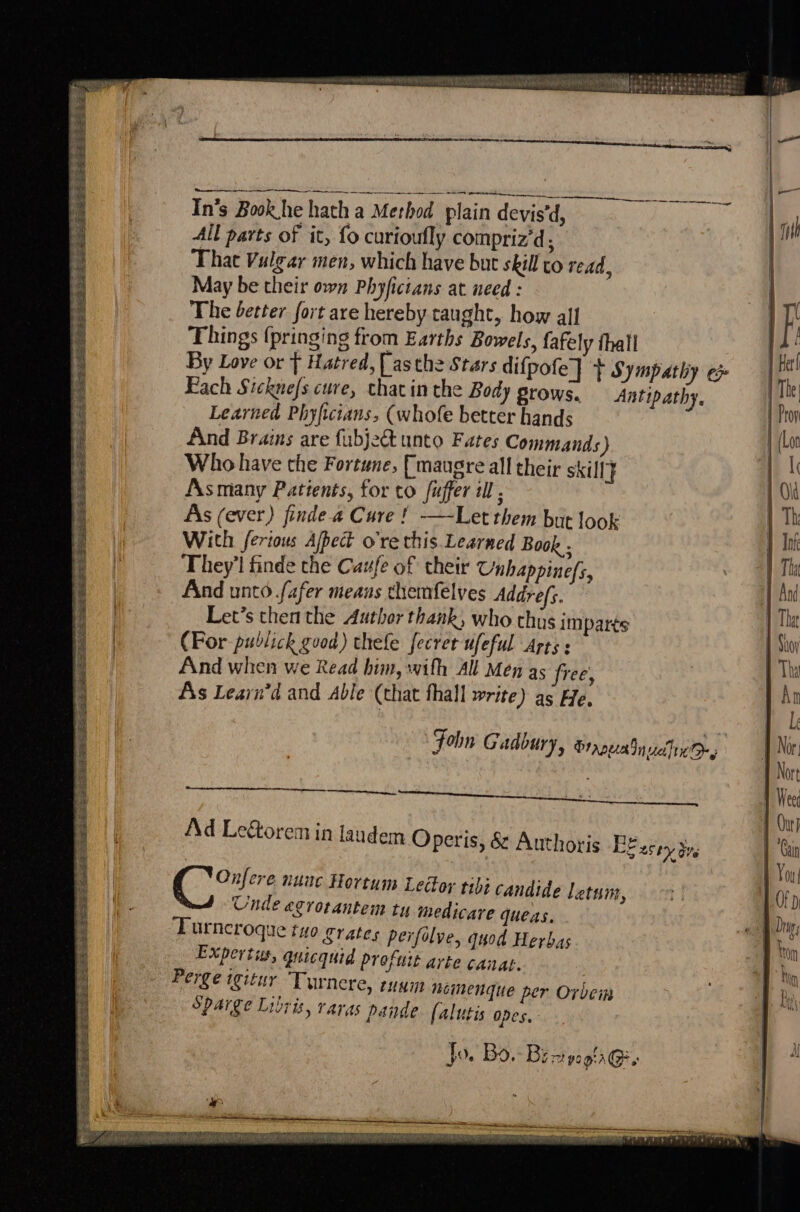 In's Book he hath a Method plain devis'd,
All parts of it, ſo curiouſly compriz'd;
That Vulgar men, which have but skill to read,
May be their own Phyſicians at need:
The better ſort are hereby taught, how all
Things ſpringing from Earths Bowels, ſafely ſhall
By Love or † Hatred, [as the Stars diſpoſe] † Sympathy &
Each Sickneſs cure, that in the Body grows. Antipathy.
Learned Phyſicians, (whoſe better hands
And Brains are ſubject unto Fates Commands)
Who have the Fortune, [maugre all their skill]
As many Patients, for to ſuffer ill;
As (ever) finde a Cure! —Let them but look
With ſerious Aſpect o're this Learned Book;
They'l finde the Cauſe of their Unhappineſs,
And unto ſafer means themſelves Addreſs.
Let's then the Author thank, who thus imparts
(For publick good) theſe ſecret uſeful Arts:
And when we Read him, wiſh All Men as free,
As Learn'd and Able (that ſhall write) as He.
John Gadbury,
Ad Lectorem in laudem Operis, & Authoris
COnſere nunc Hortum Lector tibi candide lætum,
Unde ægrotantem tu medicare queas.
Turneroque tuo grates perſolve, quod Herbas
Expertus, quicquid profuit arte canat.
Perge igitur Turnere, tuum nomenque per Orbem
Sparge Libris, raras pande ſalutis opes.
Jo. Bo.